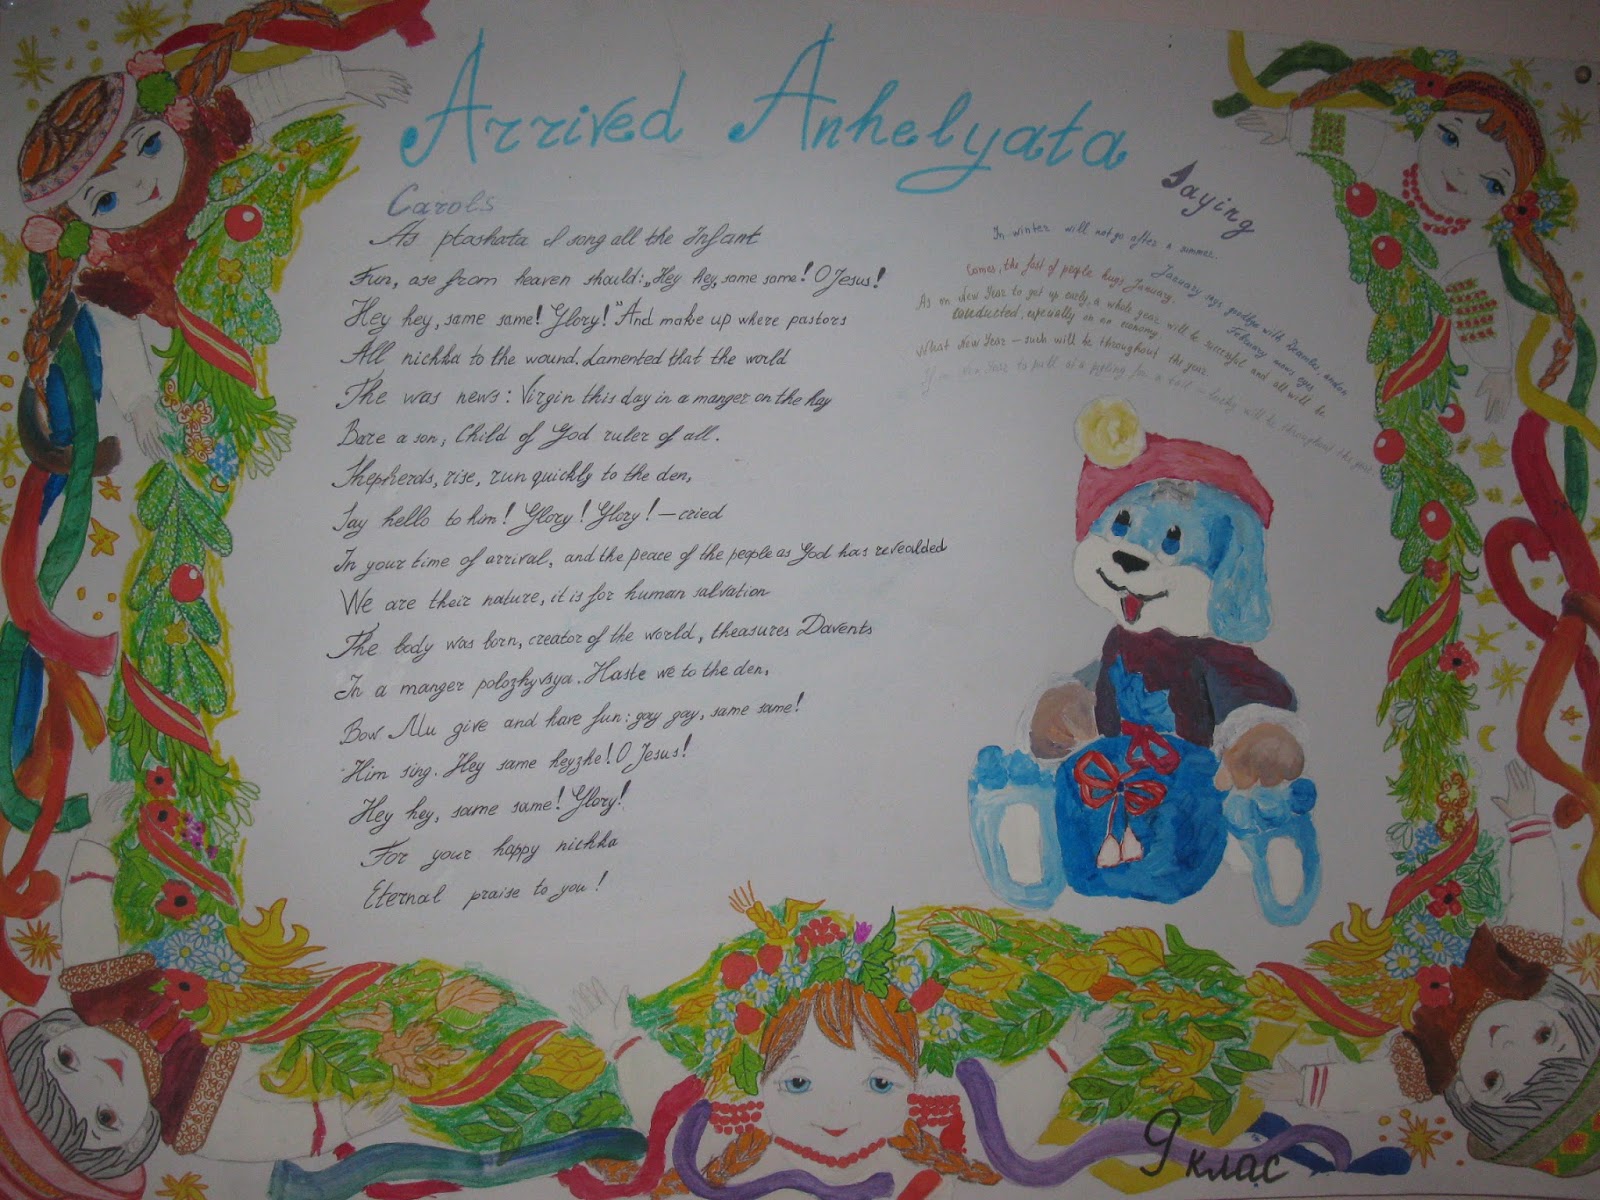 Arrived Anhelyata
Carols
As ptashata I song all the Infant
Fun, ase from heaven should: „Hey hey, same same! O Jesus!
Hey hey, same same! Glory!" And make up where pastors
All nichka to the wound. Lamented that the world
The was news: Virgin this day in a manger on the hay
Bare a son, Child of God ruler of all.
Shepherds, rise, run quickly to the den,
Say hello to him! Glory! Glory! – cried
In your time of arrival, and the peace of the people as God has revealded
We are their nature, it is for human salvation
The body was born, creator of the world, theasures Davents
In a manger polozhyvsya. Haste we to the den,
Bow Mu give and have fun: gay gay, same same!
Him sing. Hey same heyzhe! O Jesus!
Hey hey, same same! Glory!
For your happy nichka
Eternal praise to you!
Saying
In winter will not go after a summer.
January says goodbye with
February
Comes, the fast of people hugs January.
As on New Year to get up early, a whole year will be successful and all will be
conducted, especially on an economy.
What New Year – such will be throughout the year.
If on New Year to pull a for a tail – lucky will be throughout the year
9 клас